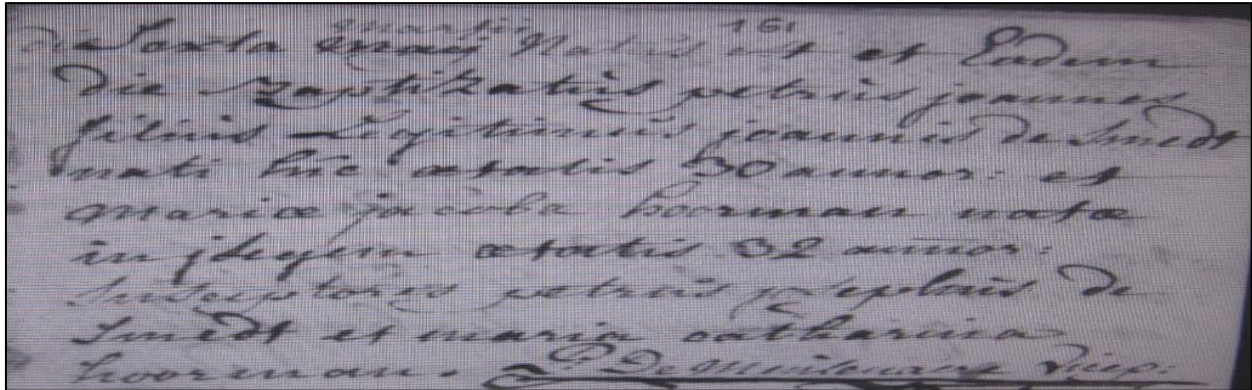 martii 161
die Sexta Natus est et Eadem
die Baptizatus petrus joannes
filius Legitimus joannis De Smedt
nati hic ætatis 30 annor: et
mariæ jacoba hoorman natæ
in ætatis 32 annor:
Susceptores petrus josephus De
Smedt et maria catharina
hoorman.